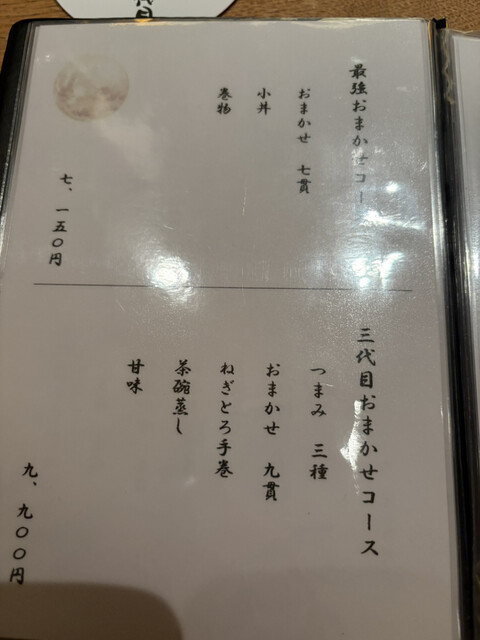 最強おまかせコー
おまかせ 七貫
小丼
巻物
七、一五〇円
三代目おまかせコース
つまみ 三種
おまかせ 九貫
ねぎとろ手巻
茶碗蒸し
甘味
九、九〇〇円